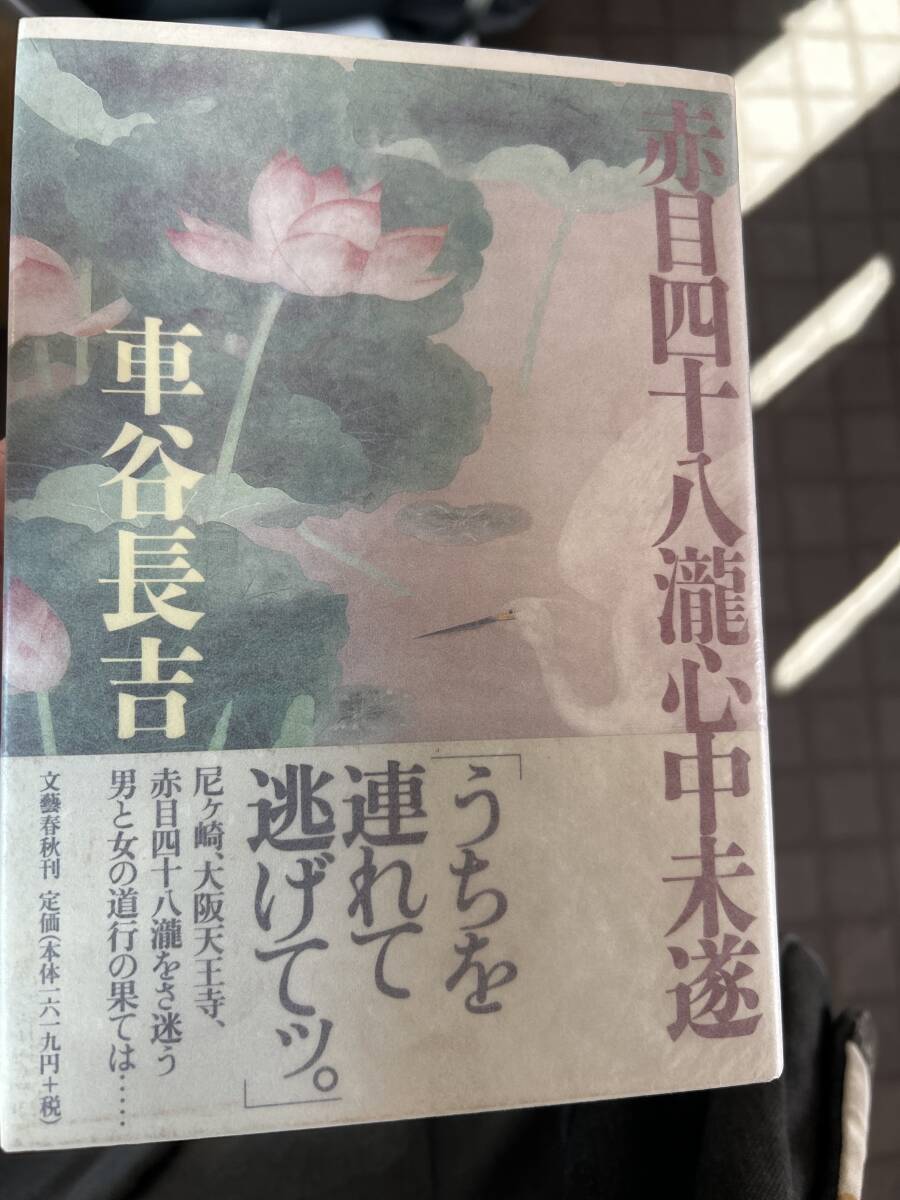 赤目四十八瀧心中未遂
車谷長吉
「うちを
連れて
逃げてッ。」
尼ヶ崎、大阪天王寺、
赤目四十八瀧をさ迷う
男と女の道行の果ては……
文藝春秋刊 定価(本体一六一九円+税)